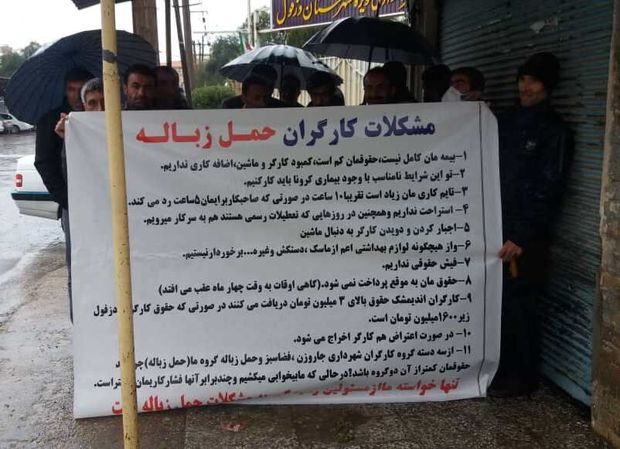 شهرستان دزفول
مشکلات کارگران حمل زباله
۱-بیمه مان کامل نیست،حقوقمان کم است،کمبود کارگر و ماشین،اضافه کاری نداریم.
۲-تو این شرایط نامناسب با وجود بیماری کرونا باید کارکنیم.
۳-تایم کاری مان زیاد است تقریبا۱۰ ساعت در صورتی که صاحبکاربرایمان۵ساعت رد می کند.
۴-استراحت نداریم وهمچنین در روزهایی که تعطیلات رسمی هستند هم به سرکار میرویم.
۵-اجبار کردن و دویدن کارگر به دنبال ماشین
۶-واز هیچگونه لوازم بهداشتی اعم ازماسک ،دستکش وغیره...برخوردارنیستیم.
۷-فیش حقوقی نداریم.
۸-حقوق مان به موقع پرداخت نمی شود.(گاهی اوقات به وقت چهار ماه عقب می افتد)
۹-کارگران اندیمشک حقوق بالای ۳ میلیون تومان دریافت می کنند در صورتی که حقوق کارگران دزفول
زیر۱۶۰۰میلیون تومان است.
۱۰-در صورت اعتراض هم کارگر اخراج می شود.
۱۱-ازسه دسته گروه کارگران شهرداری جاروزن ،فضاسبز وحمل زباله گروه ما(حمل زباله)
حقوقمان کمتراز آن دوگروه باشد؟درحالی که مابیخوابی میکشیم وچندبرابرآنها فشارکاریمان
تنها خواسته ماازمسئولین مشکلات حمل زباله